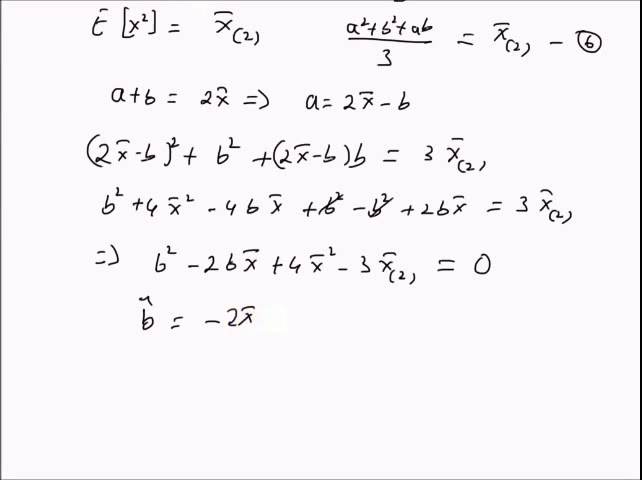 E [x²] = x̄₍₂₎   (a²+b²+ab)/3 = x̄₍₂₎ - ⑥
a+b = 2x̄ => a = 2x̄ - b
(2x̄-b)² + b² + (2x̄-b)b = 3 x̄₍₂₎
b² + 4x̄² - 4bx̄ + b² - b² + 2bx̄ = 3 x̄₍₂₎
=> b² - 2bx̄ + 4x̄² - 3x̄₍₂₎ = 0
b̂ = -2x̄